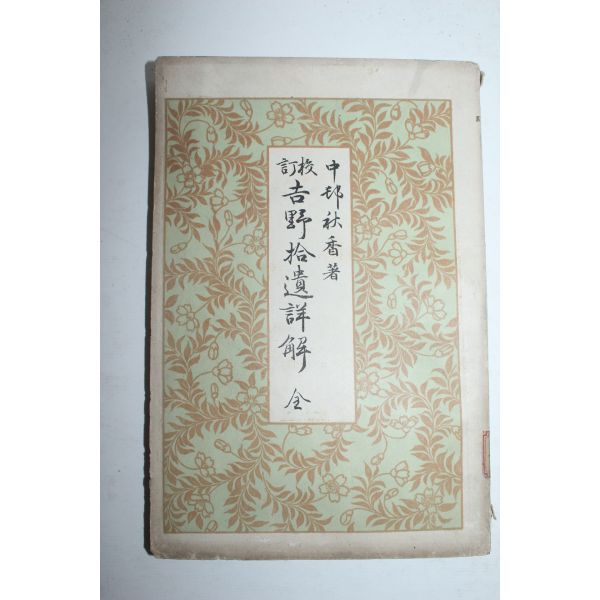 中邨秋香著
校訂吉野拾遺詳解 全